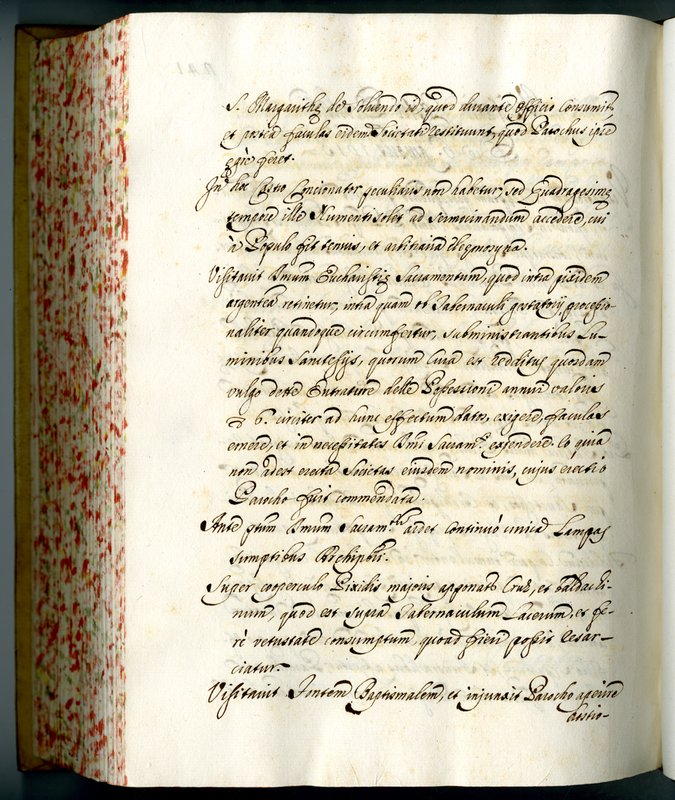 S. Margarithę de Solvendo id, quod durante Officio Consumit,
et postea faculas eidem Societati restituunt, quod Parochus ipse
egrè feret.
In hoc Castro Concionator peculiaris non habetur, sed Quadragesimę
tempore ille Numenti solet ad sermocinandum accedere, cui
à Populo fit tenuis, et arbitraria elęmosyna.
Visitavit Smum Eucharistię Sacramentum, quod intra pixidem
argenteā retinetur, intra quam et Tabernaculi gestatorij processio-
naliter quandoque circumfertur, subministrantibus Lu-
minibus Sanctesijs, quorum Cura est redditus quosdam
vulgo dette Entrature delle Possessioni annui valoris
6. circiter ad hunc effectum datos, exigere, faculas
emere, et in necessitates Smi Sacramti. expendere. Eo quia
non adest erecta Societas eiusdem nominis, cujus erectio
Parocho fuit commendata.
Ante ptum Smum Sacramtum ardet continuò unica Lampas
sumptibus Archipbri.
Super cooperculo Pixidis majoris apponatr Crux, et baldachi-
num, quod est supra Tabernaculum Lacerum, et fe-
rè vetustate consumptum, quoad fieri possit resar-
ciatur.
Visitavit Fontem Baptismalem, et injunxit Parocho aperire
hostio-